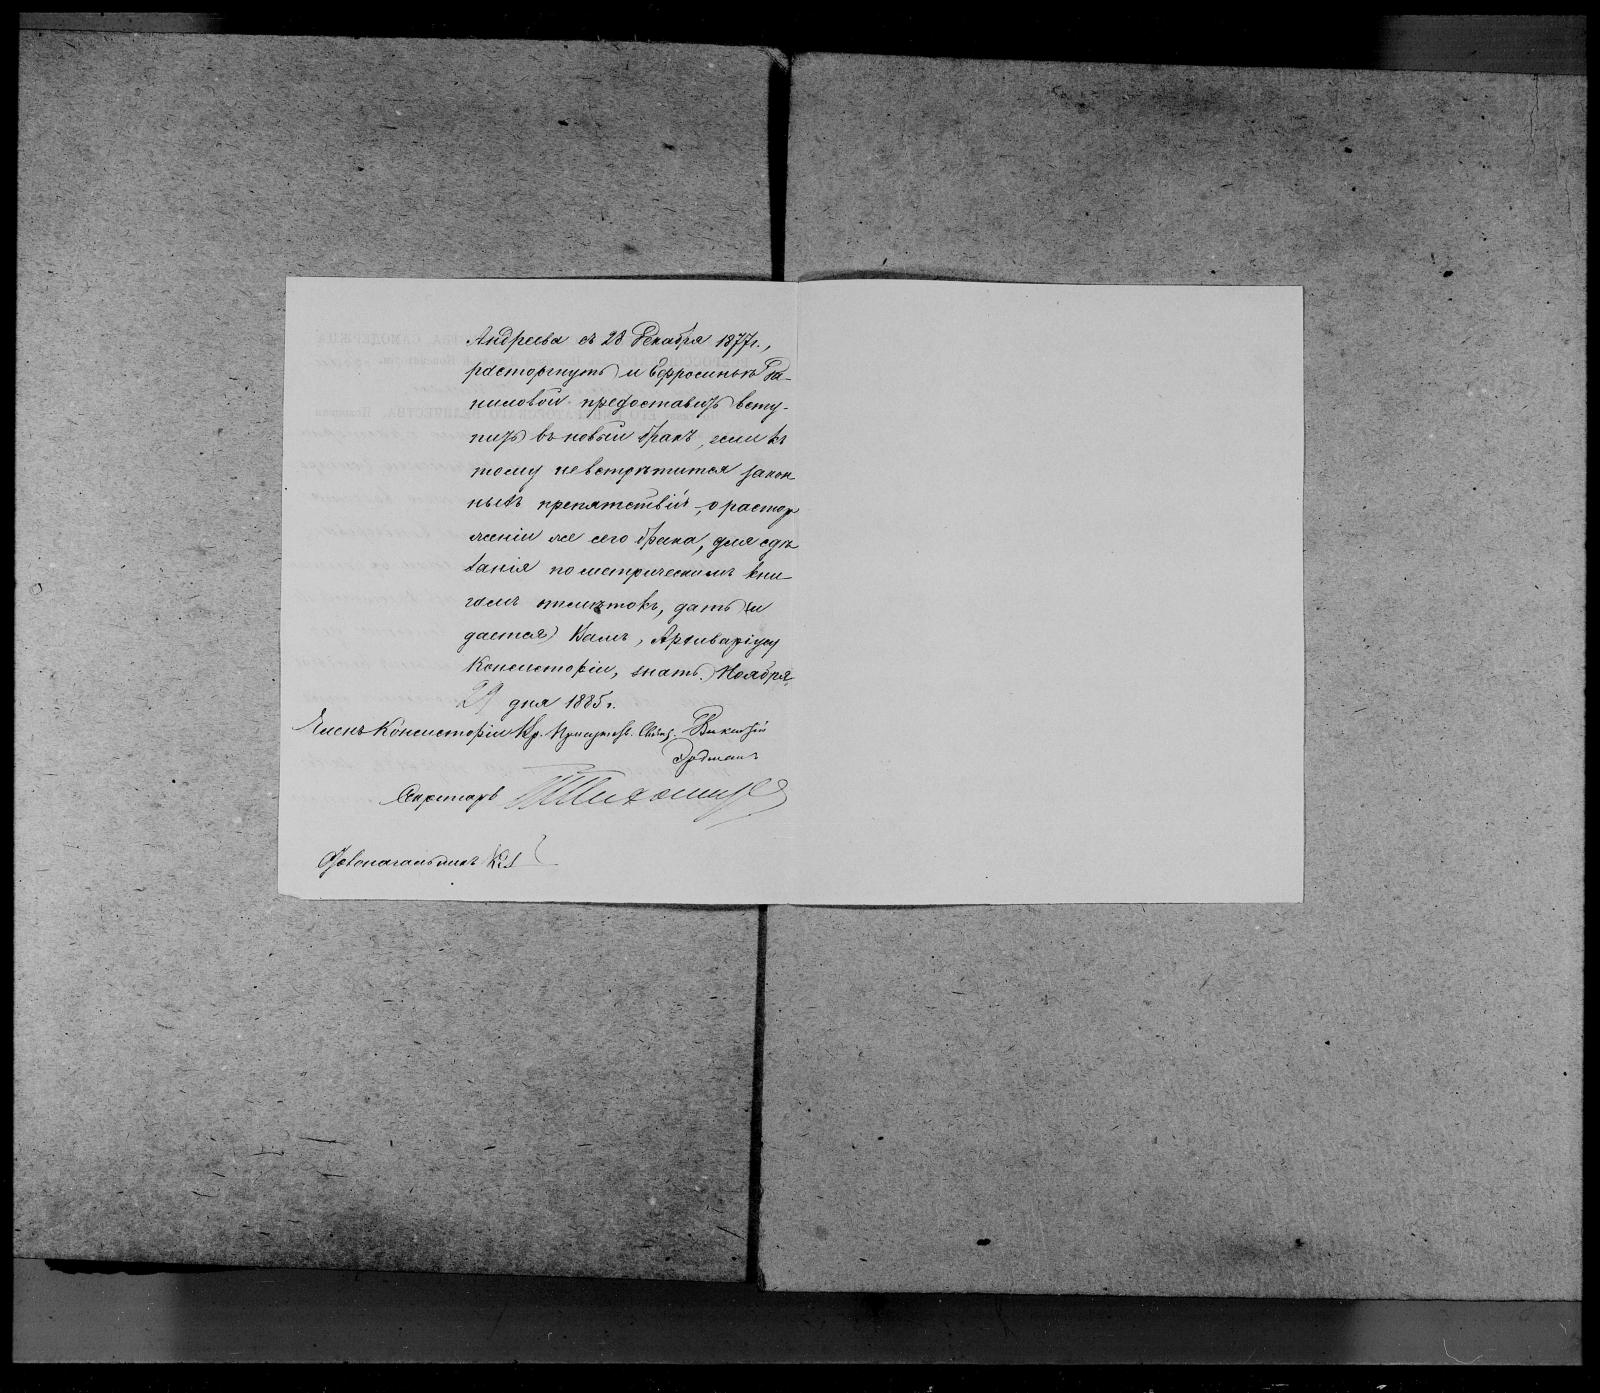 Андреева съ 28 Декабря 1877 г.,
расторгнуть и Ефросиньѣ Да-
ниловой предоставить всту-
пить въ новый бракъ, если къ
тому невстрѣтится закон
ныхъ препятствій, о растор
женіи же сего брака, для сдѣ
ланія по метрическимъ кни-
гамъ отмѣтокъ, дать (и
дается) Вамъ, Архиваріусу
Консисторіи, знать. Ноября
29 дня 1885 г.
Членъ Консисторіи Кр. Викентій
Секретарь
Столоначальникъ